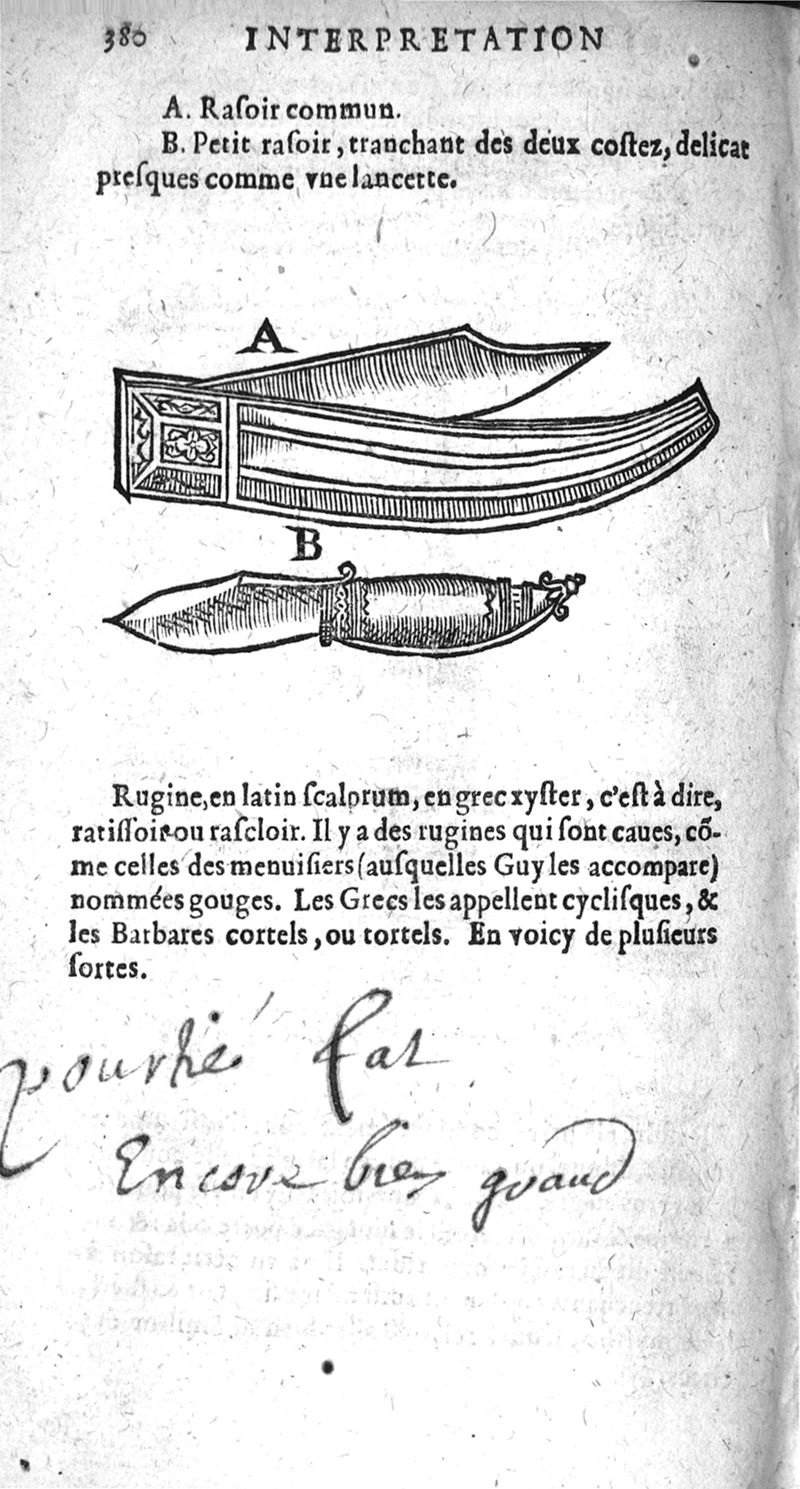 380 INTERPRETATION
A. Raſoir commun.
B. Petit raſoir, tranchant des deux coſtez, delicat
preſques comme vne lancette.
A
B
Rugine, en latin ſcalprum, en grec xyſter, c'eſt à dire,
ratiſſoir ou raſcloir. Il y a des rugines qui ſont caues, cõ-
me celles des menuiſiers (auſquelles Guy les accompare)
nommées gouges. Les Grecs les appellent cycliſques, &
les Barbares cortels, ou tortels. En voicy de pluſieurs
ſortes.
Encore bien grand